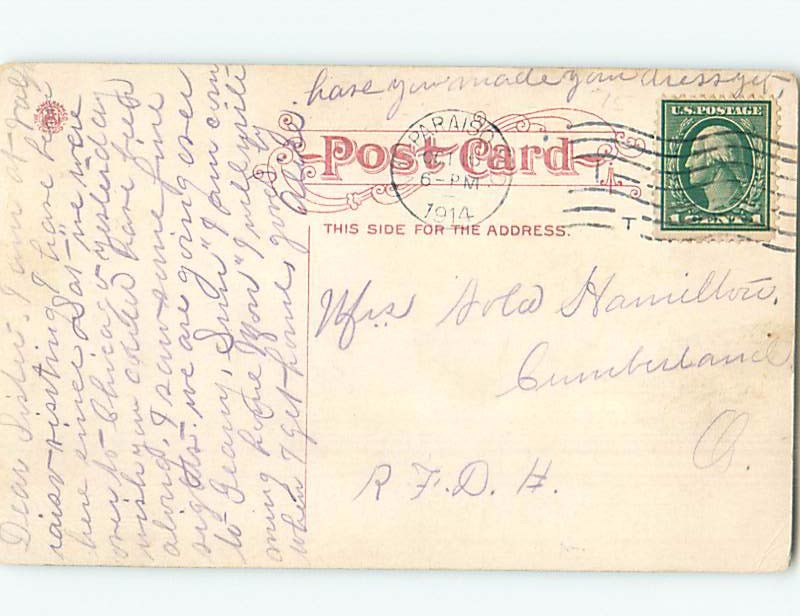 Dear Sister. I am at Valp
raiso visiting I have been
here since Sat- we were
over to Chicago yesterday
wish you could have been
along, I saw some fine
sights. we are going over
to Geary, Sun" I am com-
ming home Mon" I will write
when I get home, good by
have you made your dress yet,
PARAISO
OCT
6-PM
1914
U.S. POSTAGE
1 CENTS 1
Post Card
THIS SIDE FOR THE ADDRESS.
Mrs Hamilton,
Cumberland
O.
R.F.D. 4.